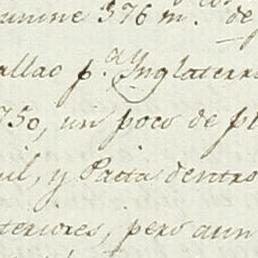 376 m.ˢ de
allao p.ᵃ Ynglaterr
750, un poco de pl
uil, y Paita dentro
teriores, pero aun